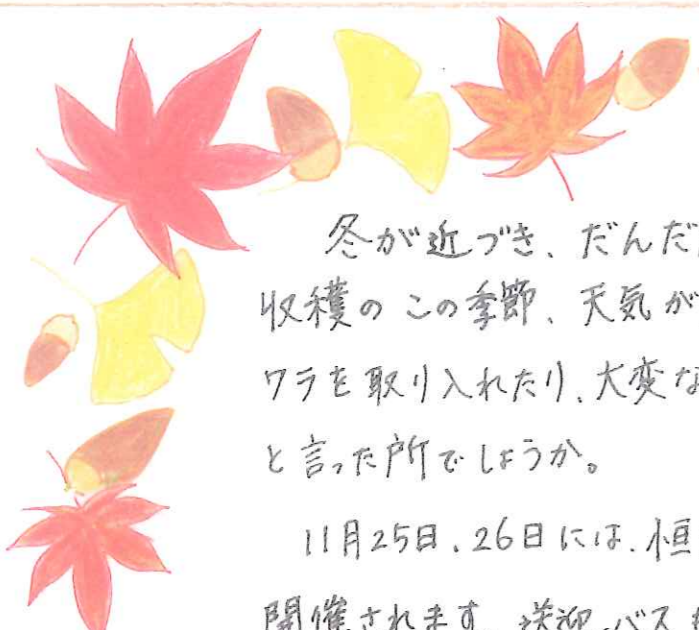 冬が近づき、だんだ
収穫のこの季節、天気が
ワラを取り入れたり、大変な
と言った所でしょうか。
11月25日、26日には、恒
開催されます。送迎バス